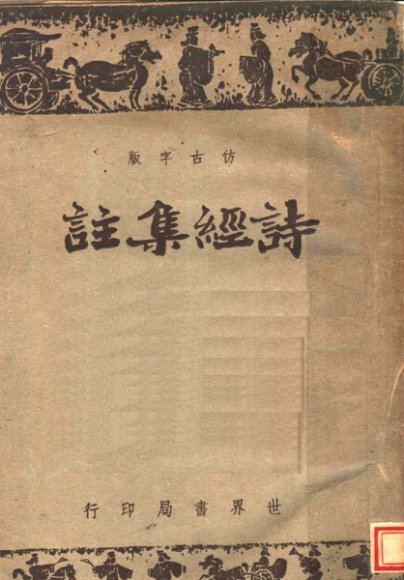 仿古字版
詩經集註
世界書局印行